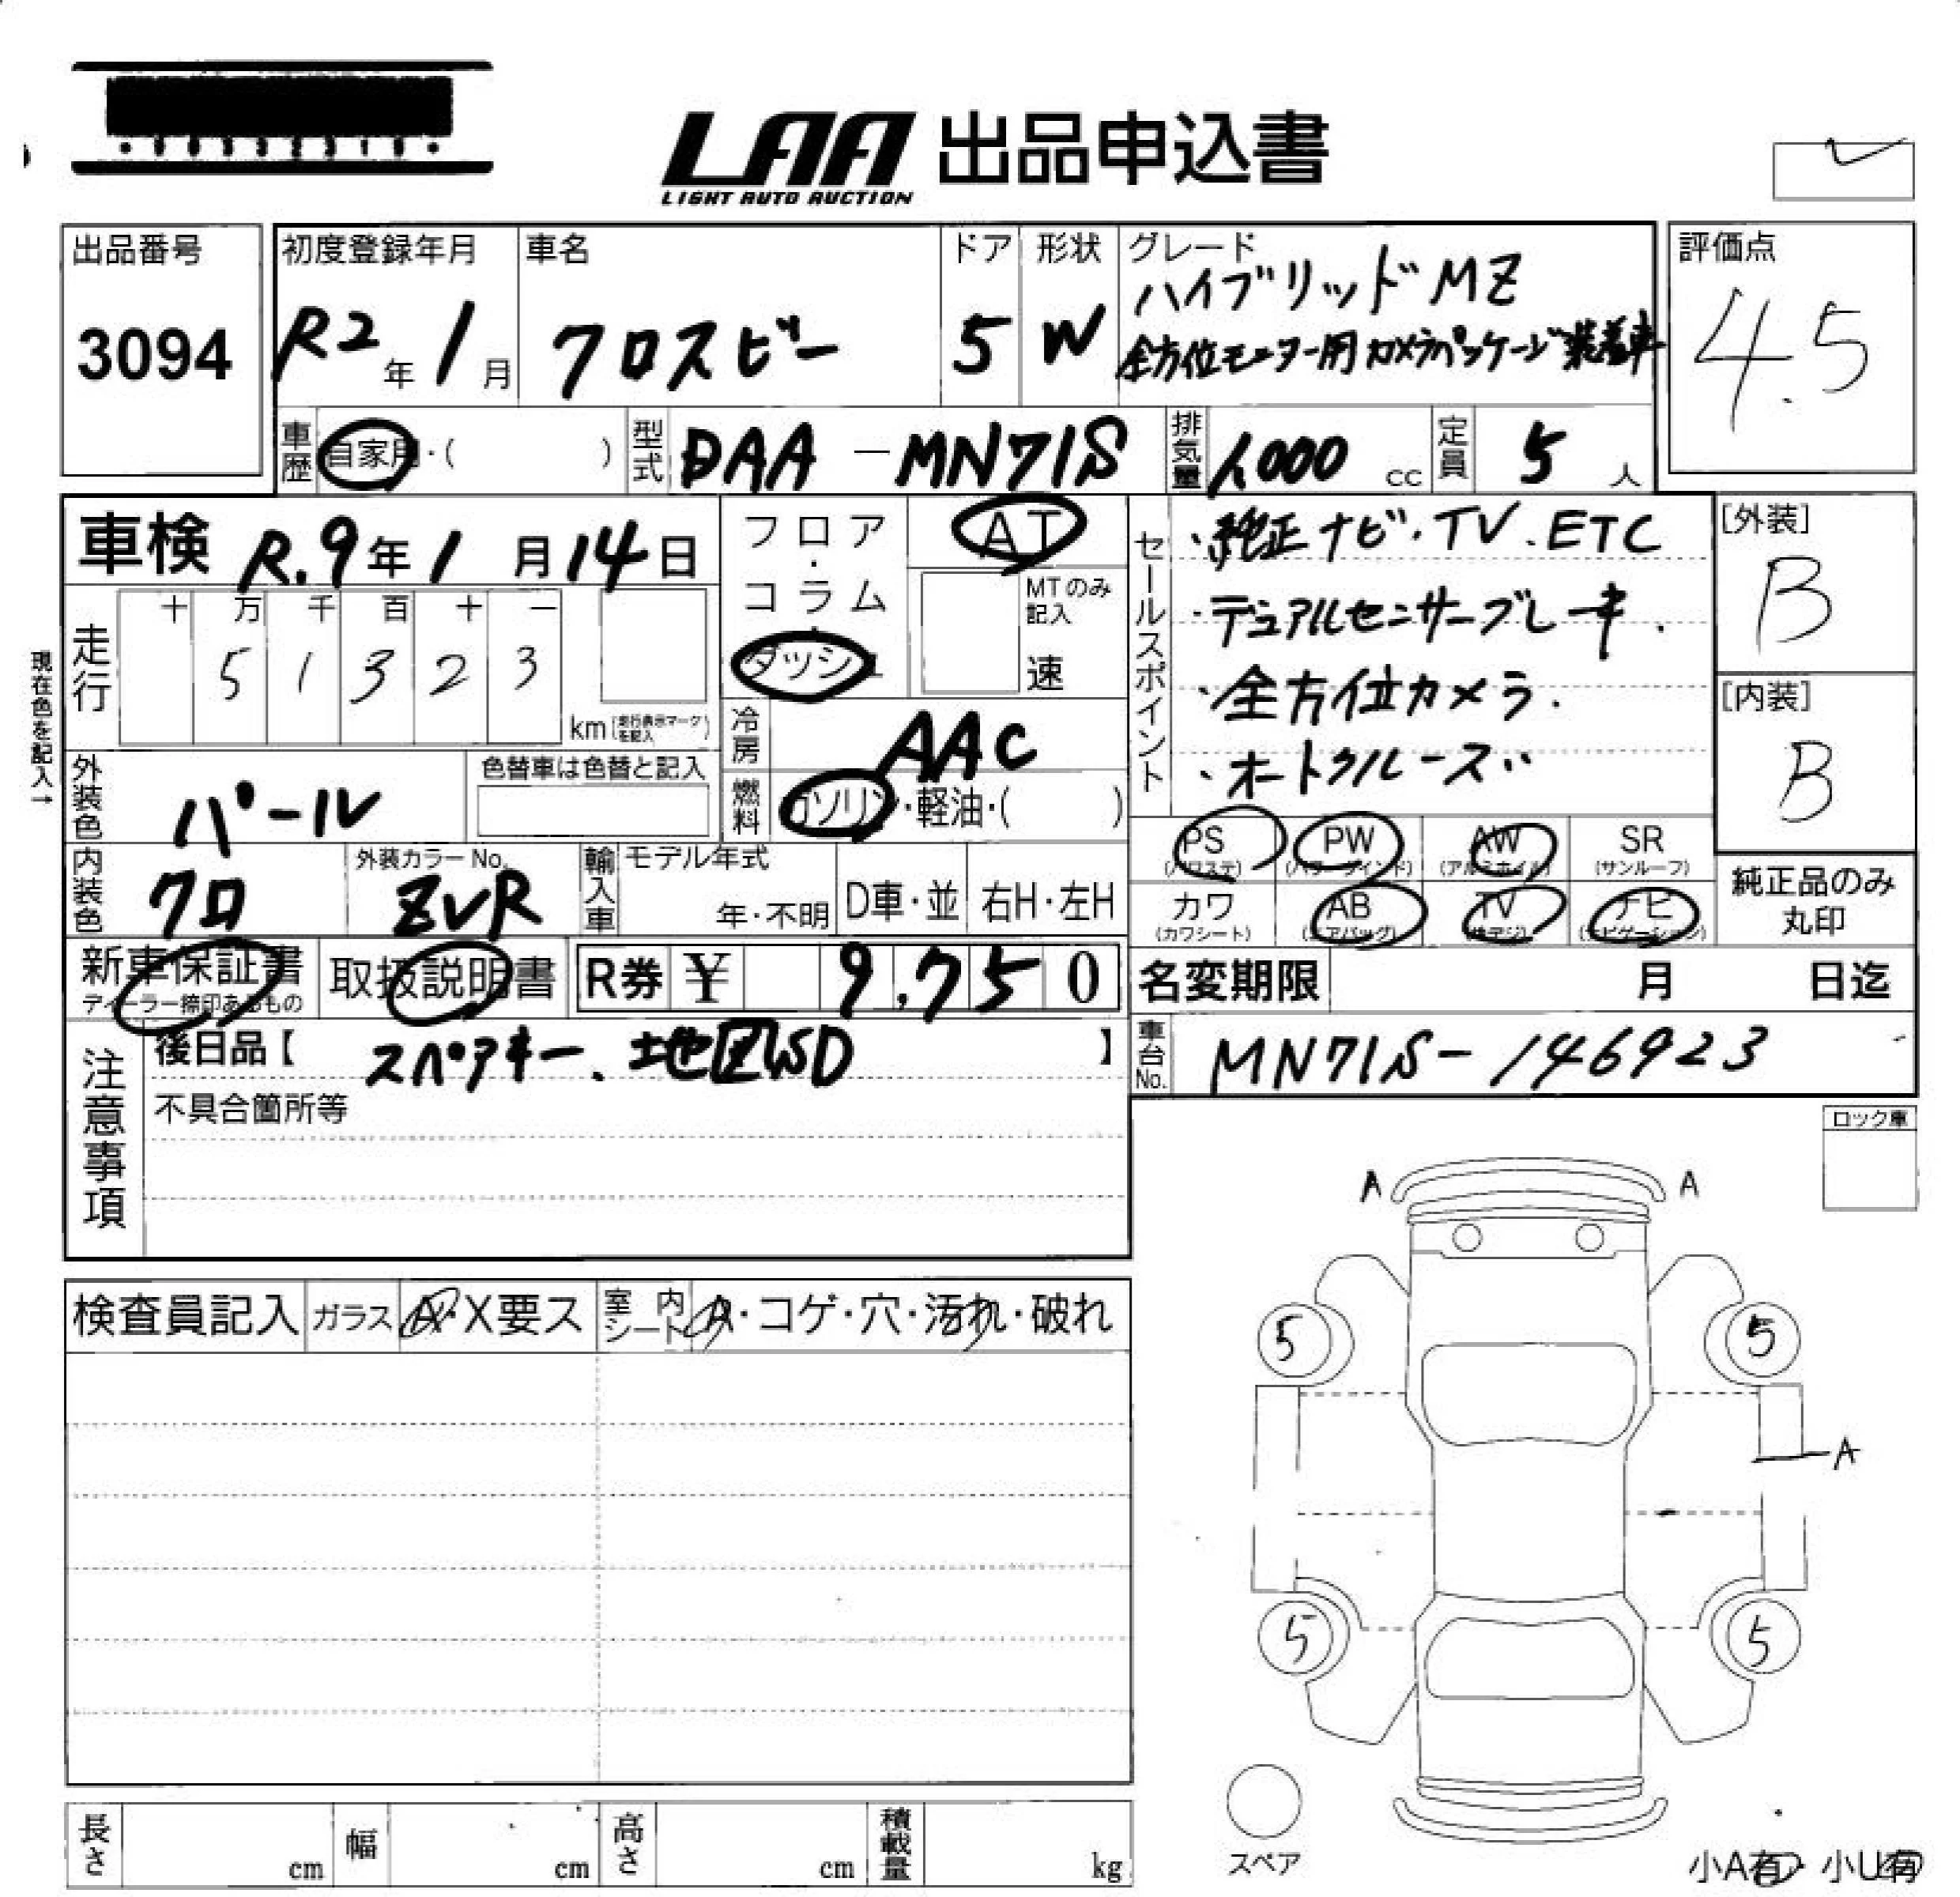 LAA 出品申込書
LIGHT AUTO AUCTION
出品番号
3094
初度登録年月
R2年1月
車名
クロスビー
ドア
5
形状
W
グレード
ハイブリッドMZ
全方位モニター用カメラパッケージ装着車
評価点
4.5
車歴
自家用・( )
型式
DAA-MN71S
排気量
1000 cc
定員
5 人
車検 R.9年1月14日
現在色を記入→
走行
十 万 千 百 十 一
5 1 3 2 3
km(走行表示マークを記入)
フロア・コラム・ダッシュ
AT
MTのみ記入
速
冷房
AAC
燃料
ガソリン・軽油・( )
外装色
パール
色替車は色替と記入
内装色
クロ
外装カラーNo.
ZVR
輸入車
モデル年式
年・不明
D車・並
右H・左H
セールスポイント
・純正ナビ・TV・ETC
・デュアルセンサーブレーキ.
・全方位カメラ.
・オートクルーズ
[外装]
B
[内装]
B
PS (パワステ)
PW (パワーウインド)
AW (アルミホイル)
SR (サンルーフ)
カワ (カワシート)
AB (エアバッグ)
TV (地デジ)
ナビ (ナビゲーション)
純正品のみ丸印
新車保証書
ディーラー捺印あるもの
取扱説明書
R券 ¥ 9,750
名変期限 月 日迄
注意事項
後日品【 スペアキー、地図SD 】
不具合箇所等
車台No.
MN71S-146923
ロック車
検査員記入
ガラス A・X要ス
室内シート A・コゲ・穴・汚れ・破れ
A A
5 5
A
5 5
スペア
小A有・小U有
長さ cm
幅 cm
高さ cm
積載量 kg